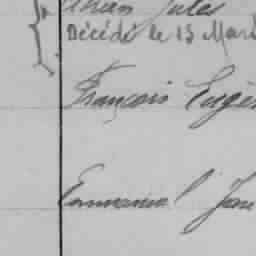 Jules
Décédé le 13 Mar
François Eugèn
Emmanuel Jean